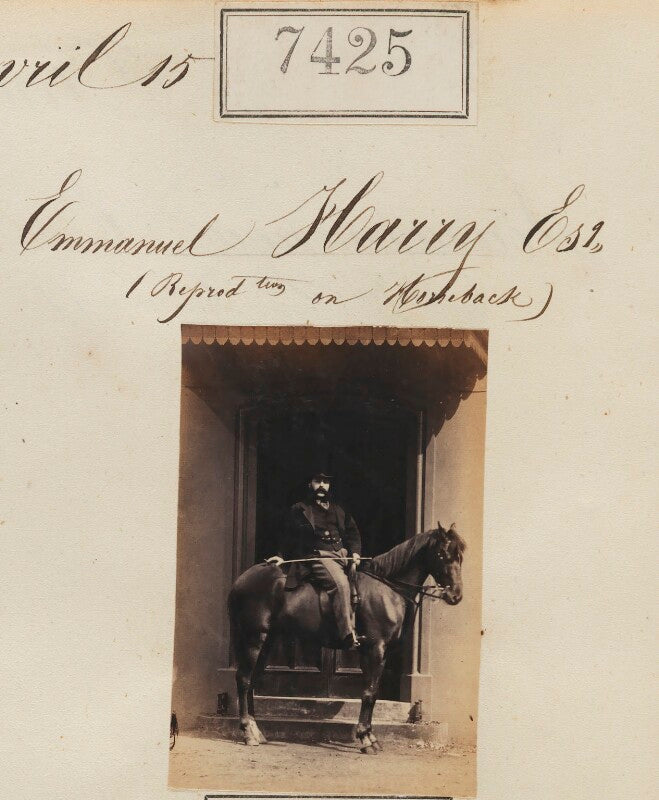 vril 15
7425
Emmanuel Harry Esq,
(Reprod tion on Horseback)